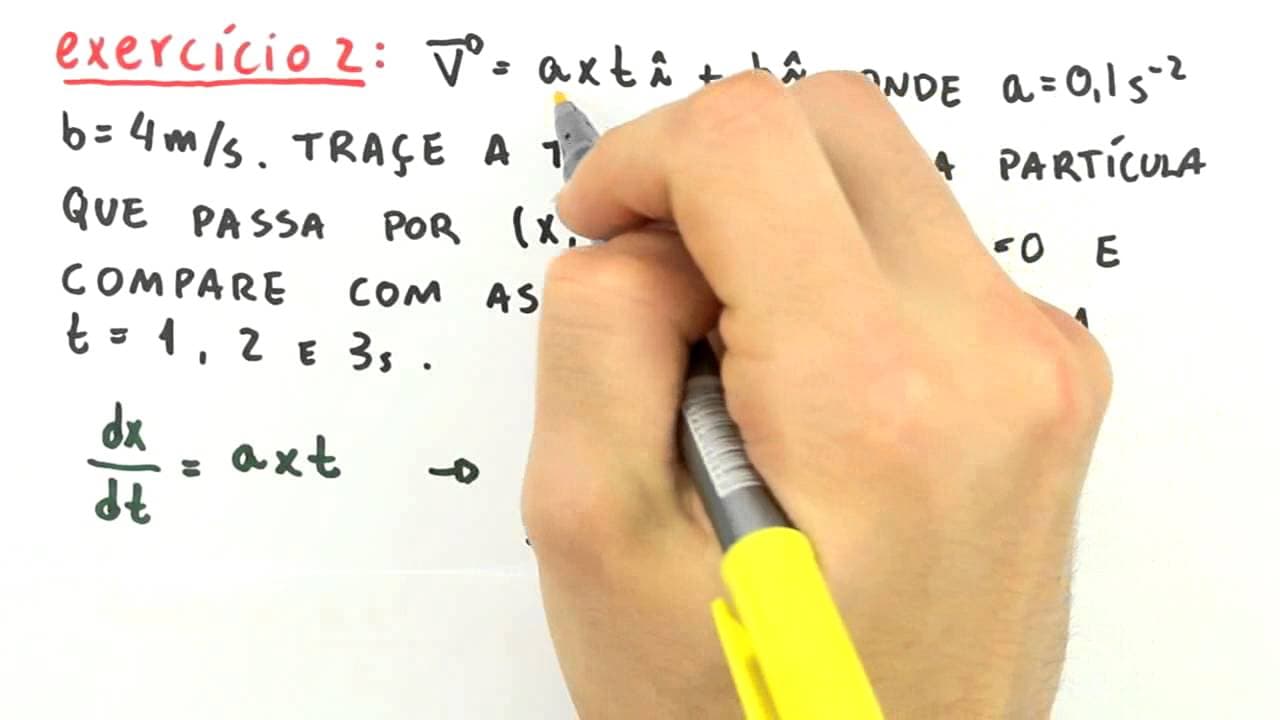 exercício 2: V = a x t î + b î ONDE a = 0,1 s⁻²
b = 4 m/s. TRAÇE A PARTÍCULA
QUE PASSA POR (x, =0 E
COMPARE COM AS
t = 1, 2 E 3s.
dx/dt = a x t →